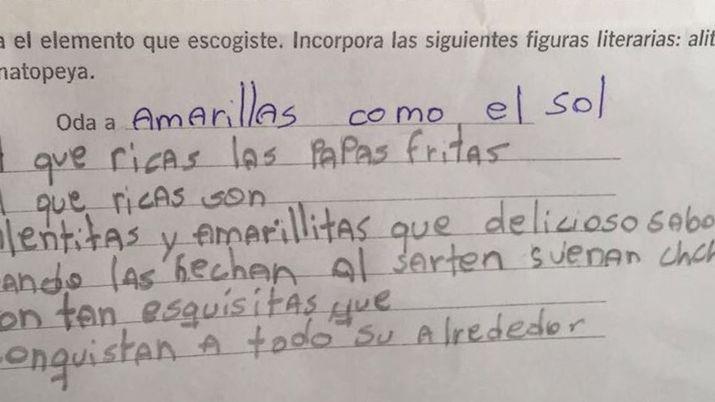 a el elemento que escogiste. Incorpora las siguientes figuras literarias: alit
natopeya.
Oda a Amarillas como el sol
que ricas las papas fritas
que ricas son
lentitas y amarillitas que delicioso sabo
ando las hechan al sarten suenan chch
on tan esquisitas que
onquistan a todo su alrededor